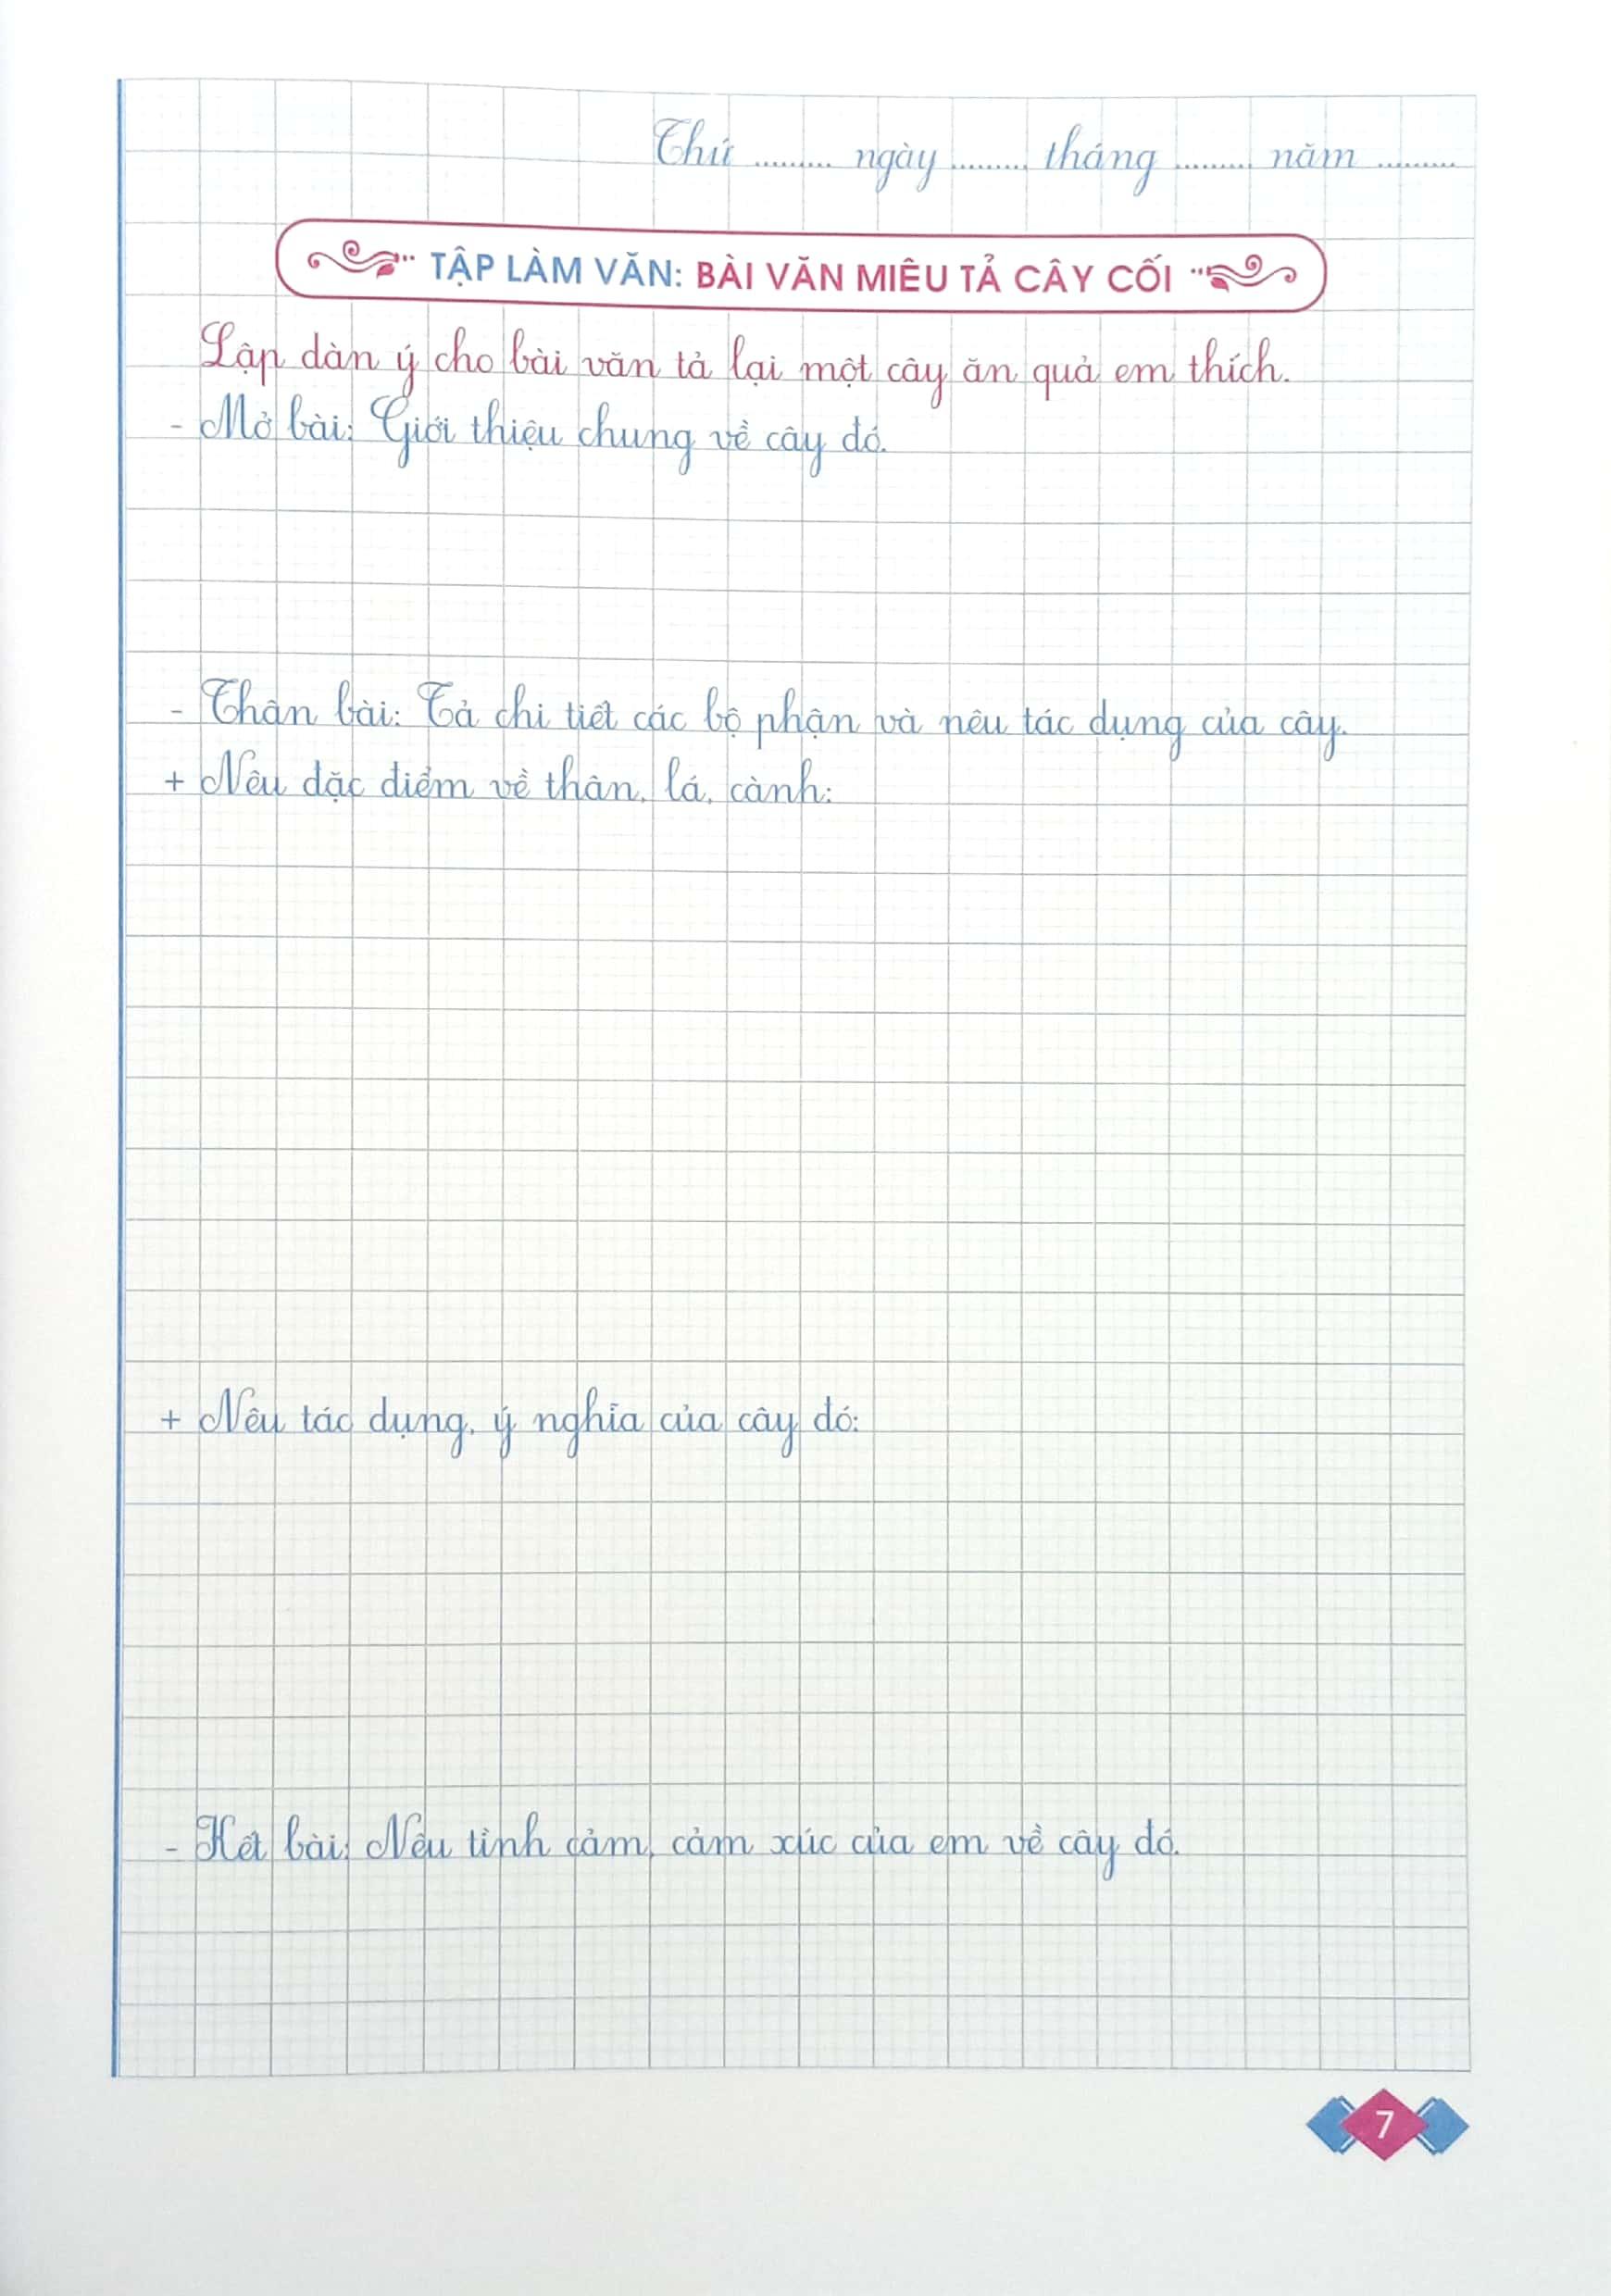 Thứ ......... ngày ......... tháng ......... năm .........
TẬP LÀM VĂN: BÀI VĂN MIÊU TẢ CÂY CỐI
Lập dàn ý cho bài văn tả lại một cây ăn quả em thích.
- Mở bài: Giới thiệu chung về cây đó.
- Thân bài: Tả chi tiết các bộ phận và nêu tác dụng của cây.
+ Nêu đặc điểm về thân, lá, cành:
+ Nêu tác dụng, ý nghĩa của cây đó:
- Kết bài: Nêu tình cảm, cảm xúc của em về cây đó.
7